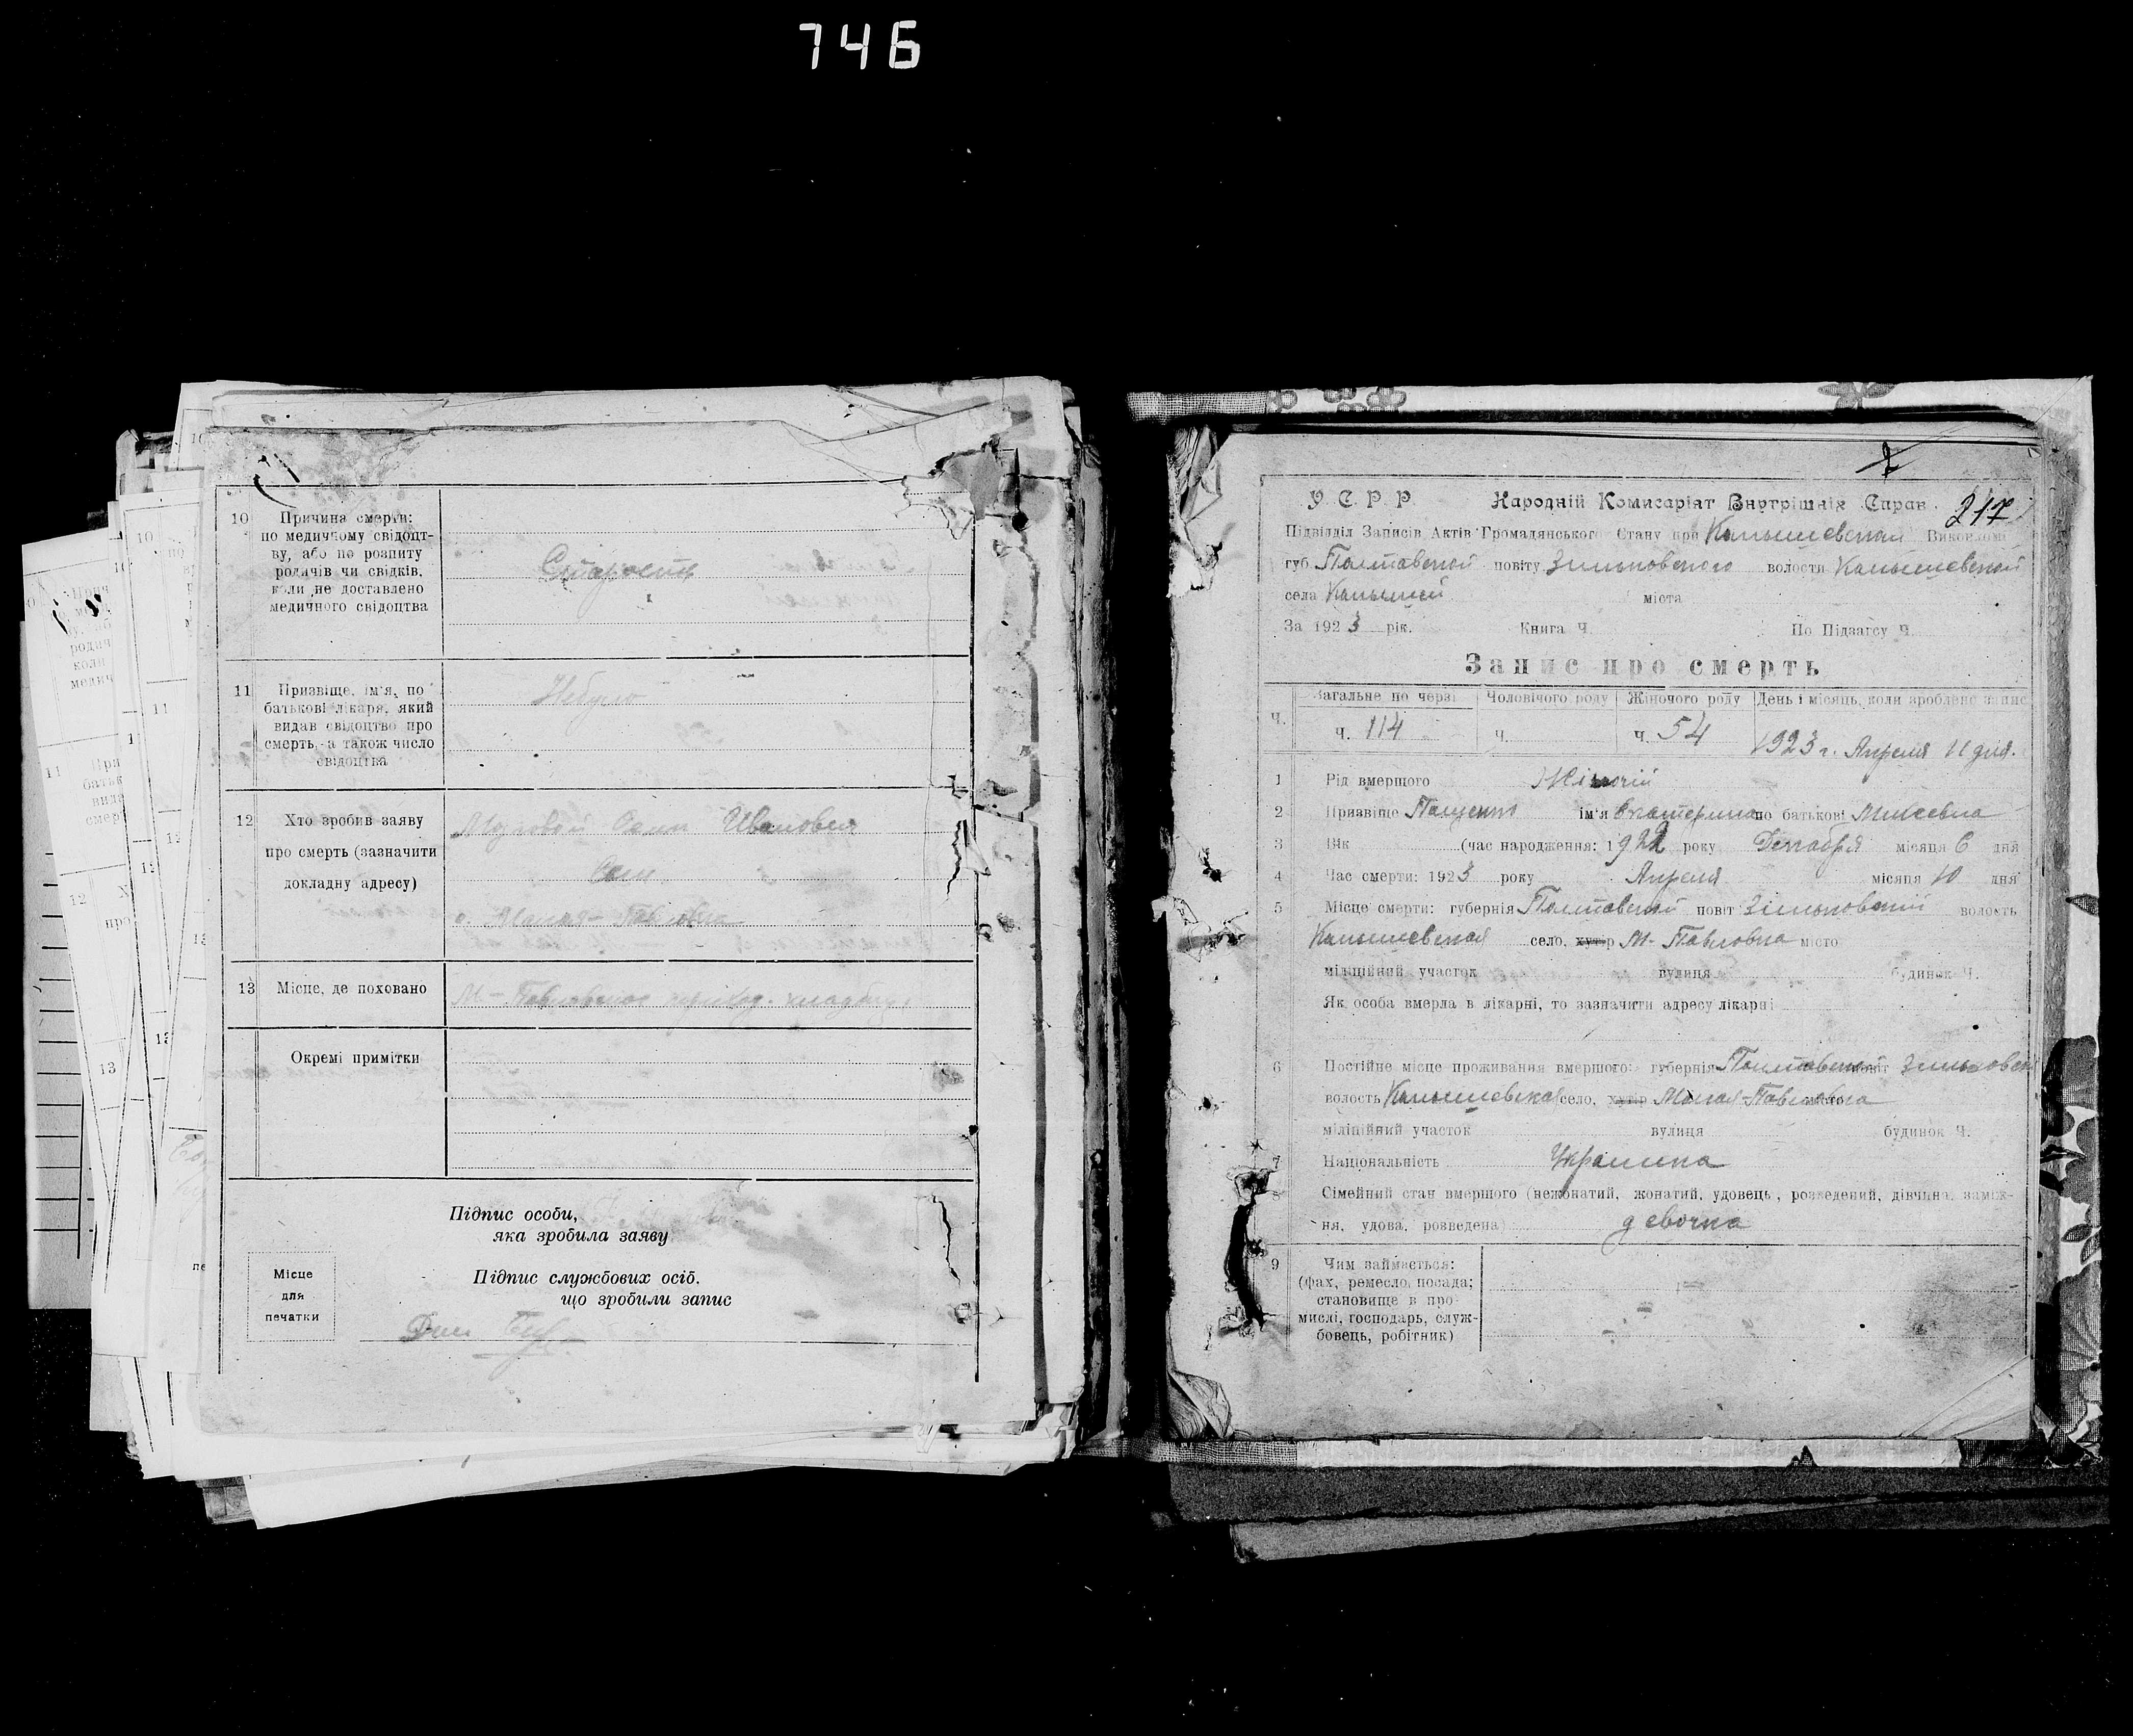 746
10 Причина смерти:
по медичному свідоцт-
ву, або по розпиту
родичів чи свідків,
коли не доставлено
медичного свідоцтва
Старость
11 Призвіще, ім'я, по
батькові лікаря, який
видав свідоцтво про
смерть, а також число
свідоцтва
Небуло
12 Хто зробив заяву
про смерть (зазначити
докладну адресу)
Ивановен
с. Малая-Павловка
13 Місце, де поховано
М-Павловское приход. кладбищ.
Окремі примітки
Підпис особи,
яка зробила заяву
Підпис службових осіб,
що зробили запис
Місце
для
печатки
У.С.Р.Р. Народній Комисаріят Внутрішніх Справ. 217
Підвідділ Записів Актів Громадянського Стану при Камышевском Виконкомі
губ. Полтавской повіту Зиньковского волости Камышевской
села Камыший міста
За 1923 рік. Книга Ч. По Підзагсу Ч.
Запис про смерть
Ч. Загальне по черзі Чоловічого роду Жіночого роду День і місяць, коли зроблено запис
ч. 114 ч. ч. 54 1923 г. Апреля 11 дня.
1 Рід вмершого Жіночій
2 Призвіще Пащенко ім'я Екатерина по батькові Мисеевна
3 Вік (час народження: 1922 року Декабря місяця 6 дня
4 Час смерти: 1923 року Апреля місяця 10 дня
5 Місце смерти: губернія Полтавской повіт Зіньковский волость
Камышевская село, хутір М-Павловка місто
міліційний участок вулиця будинок Ч.
Як особа вмерла в лікарні, то зазначити адресу лікарні
6 Постійне місце проживання вмершого: губернія Полтавская повіт Зиньковск
волость Камышевская село, хутір Малая-Павловка місто
міліційний участок вулиця будинок Ч.
7 Національність Украинка
8 Сімейний стан вмершого (нежонатий, жонатий, удовець, розведений, дівчина, заміж-
ня, удова, розведена) девочка
9 Чим займається:
(фах, ремесло, посада;
становище в про-
мислі, господарь, служ-
бовець, робітник)